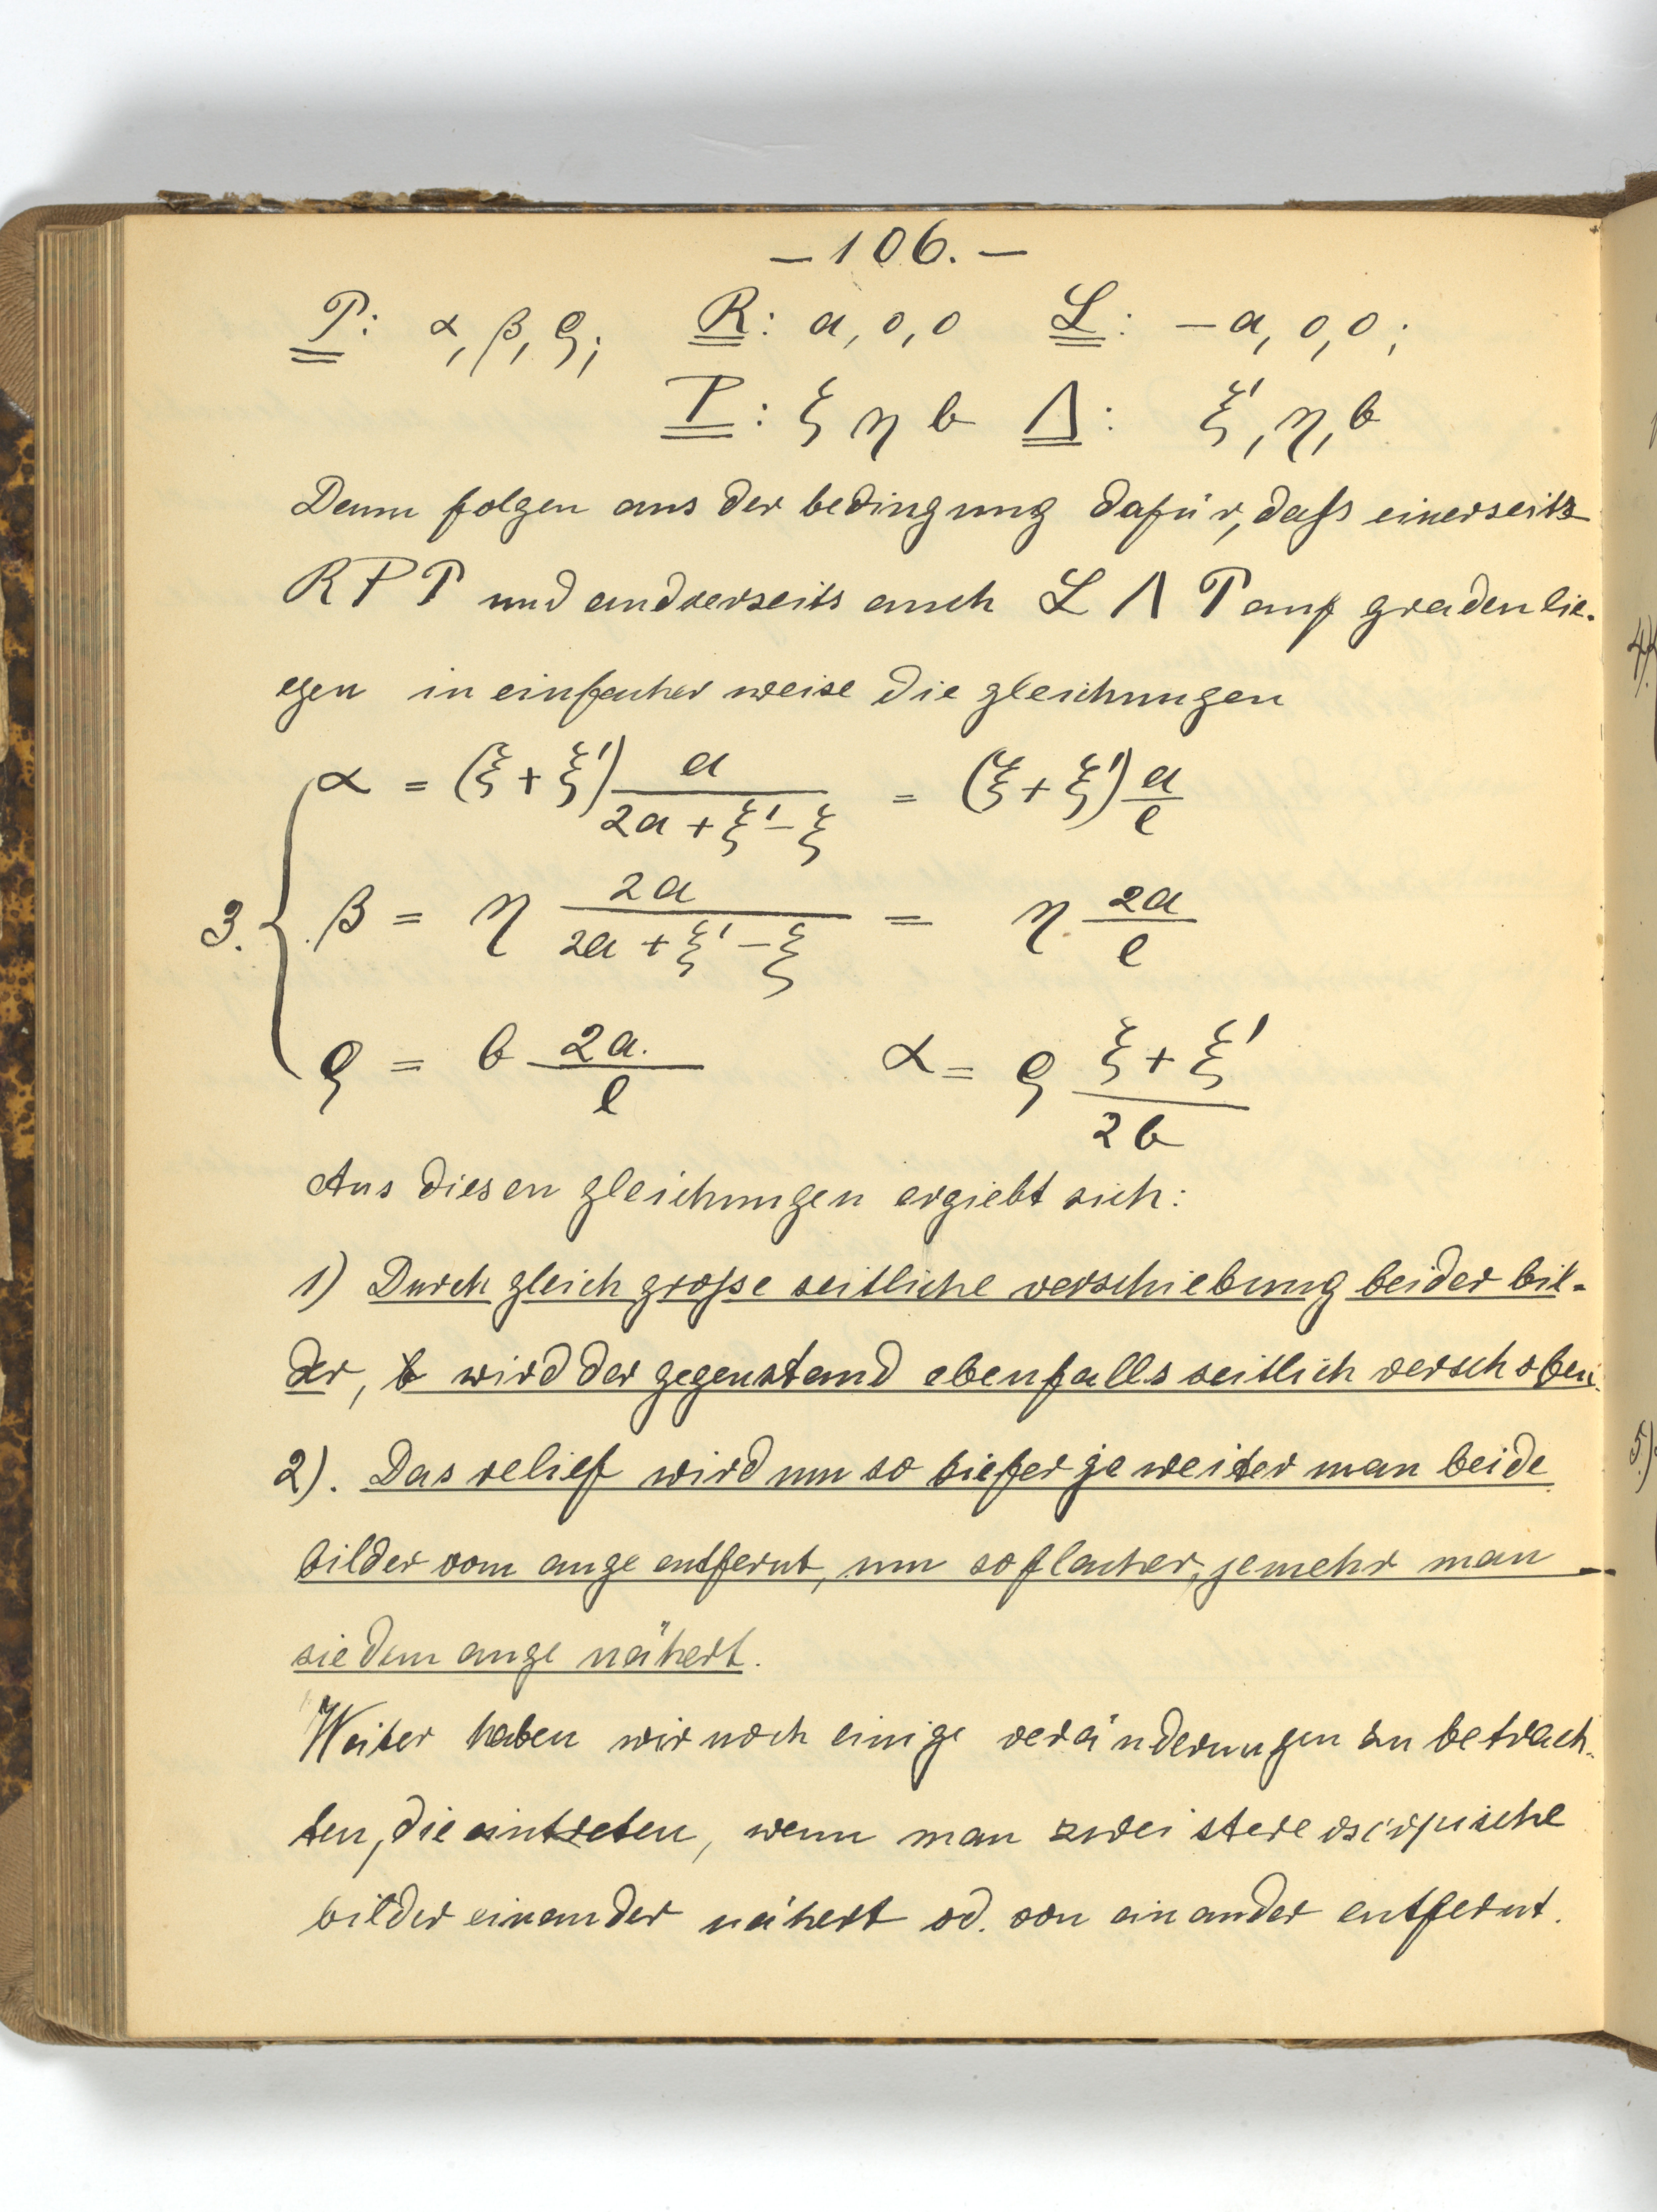 – 106. –
P: α, β, ϱ; R: a, 0, 0 L: – a, 0, 0;
P: ξ η b Λ: ξ', η, b
Dann folgen aus der bedingung dafür, daß einerseits
R P P und andrerseits auch L Λ P auf graden lie-
gen in einfacher weise die gleichungen
α = (ξ + ξ') a / (2a + ξ' – ξ) = (ξ + ξ') a / l
3. β = η 2a / (2a + ξ' – ξ) = η. 2a / l
ϱ = b 2a. / l α = ϱ (ξ + ξ') / 2b
Aus diesen gleichungen ergiebt sich:
1) Durch gleich große seitliche verschiebung beider bil-
der, wird der gegenstand ebenfalls seitlich verschoben.
2). Das relief wird um so tiefer je weiter man beide
bilder vom auge entfernt, um so flacher, jemehr man
sie dem auge nähert.
Weiter haben wir noch einige veränderungen zu betrach-
ten, die eintreten, wenn man zwei stereoscopische
bilder einander nähert od. von einander entfernt.
4)
5.)